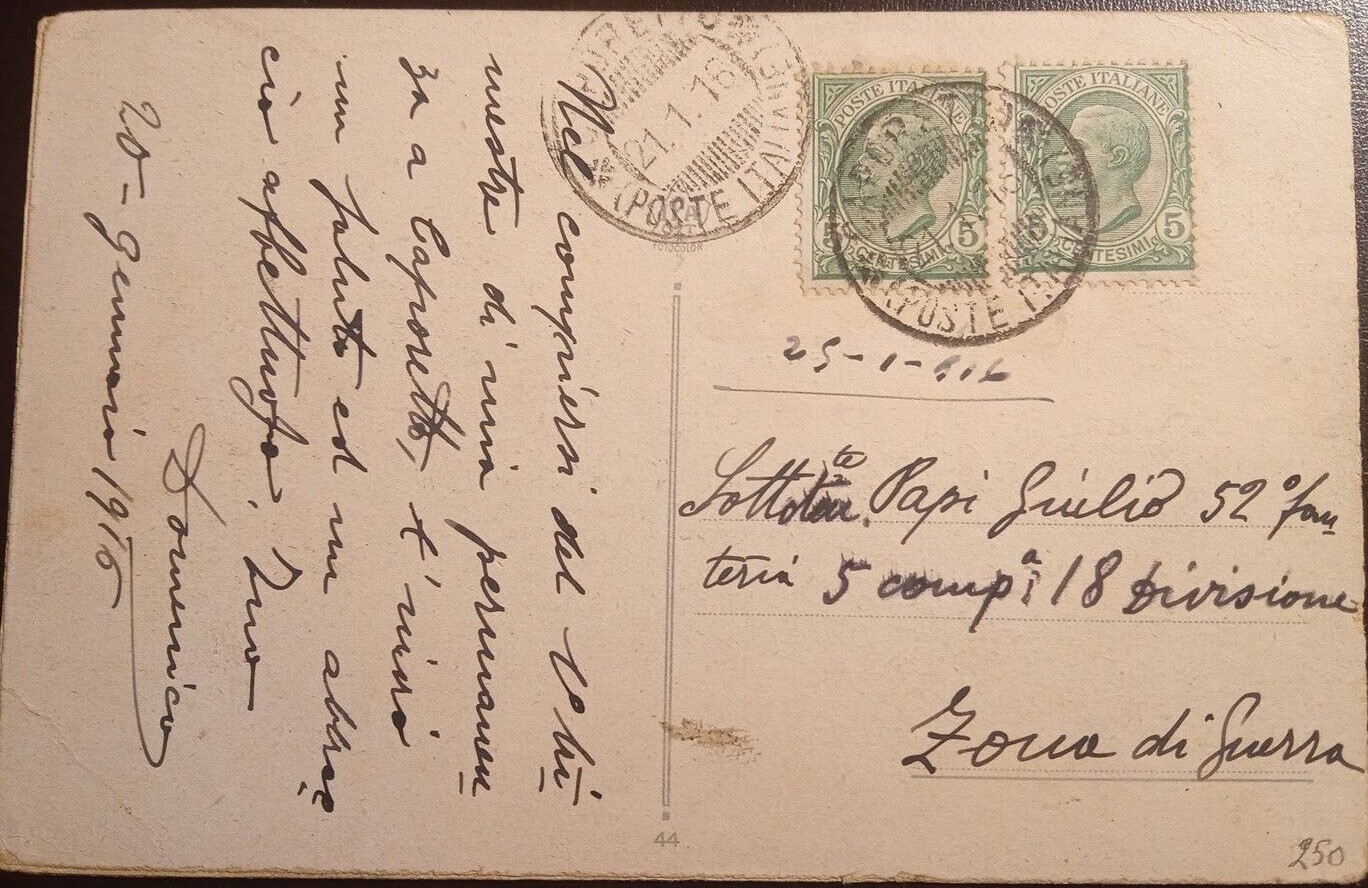 Nel compiersi del 1° tri
mestre di mia permanen
za a Caporetto, t'invio
un saluto ed un abbrac
cio affettuoso. Tuo
Domenico
20 - gennaio 1916
21.1.16
(POSTE ITALIANE)
POSTE ITALIANE
5
CENTESIMI
POSTE ITALIANE
5
CENTESIMI
(POSTE ITALIANE)
FOTOCOLOR
25-1-916
Sottote Papi Giulio 52° fan
teria 5 compa 18 Divisione
Zona di Guerra
44
250